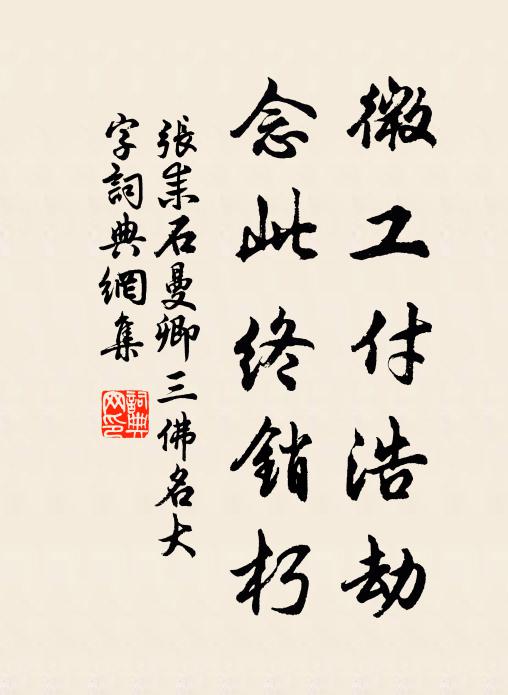 微工付浩劫
念此終銷朽
張耒石曼卿三佛名大
字詞典網集
詞典网印